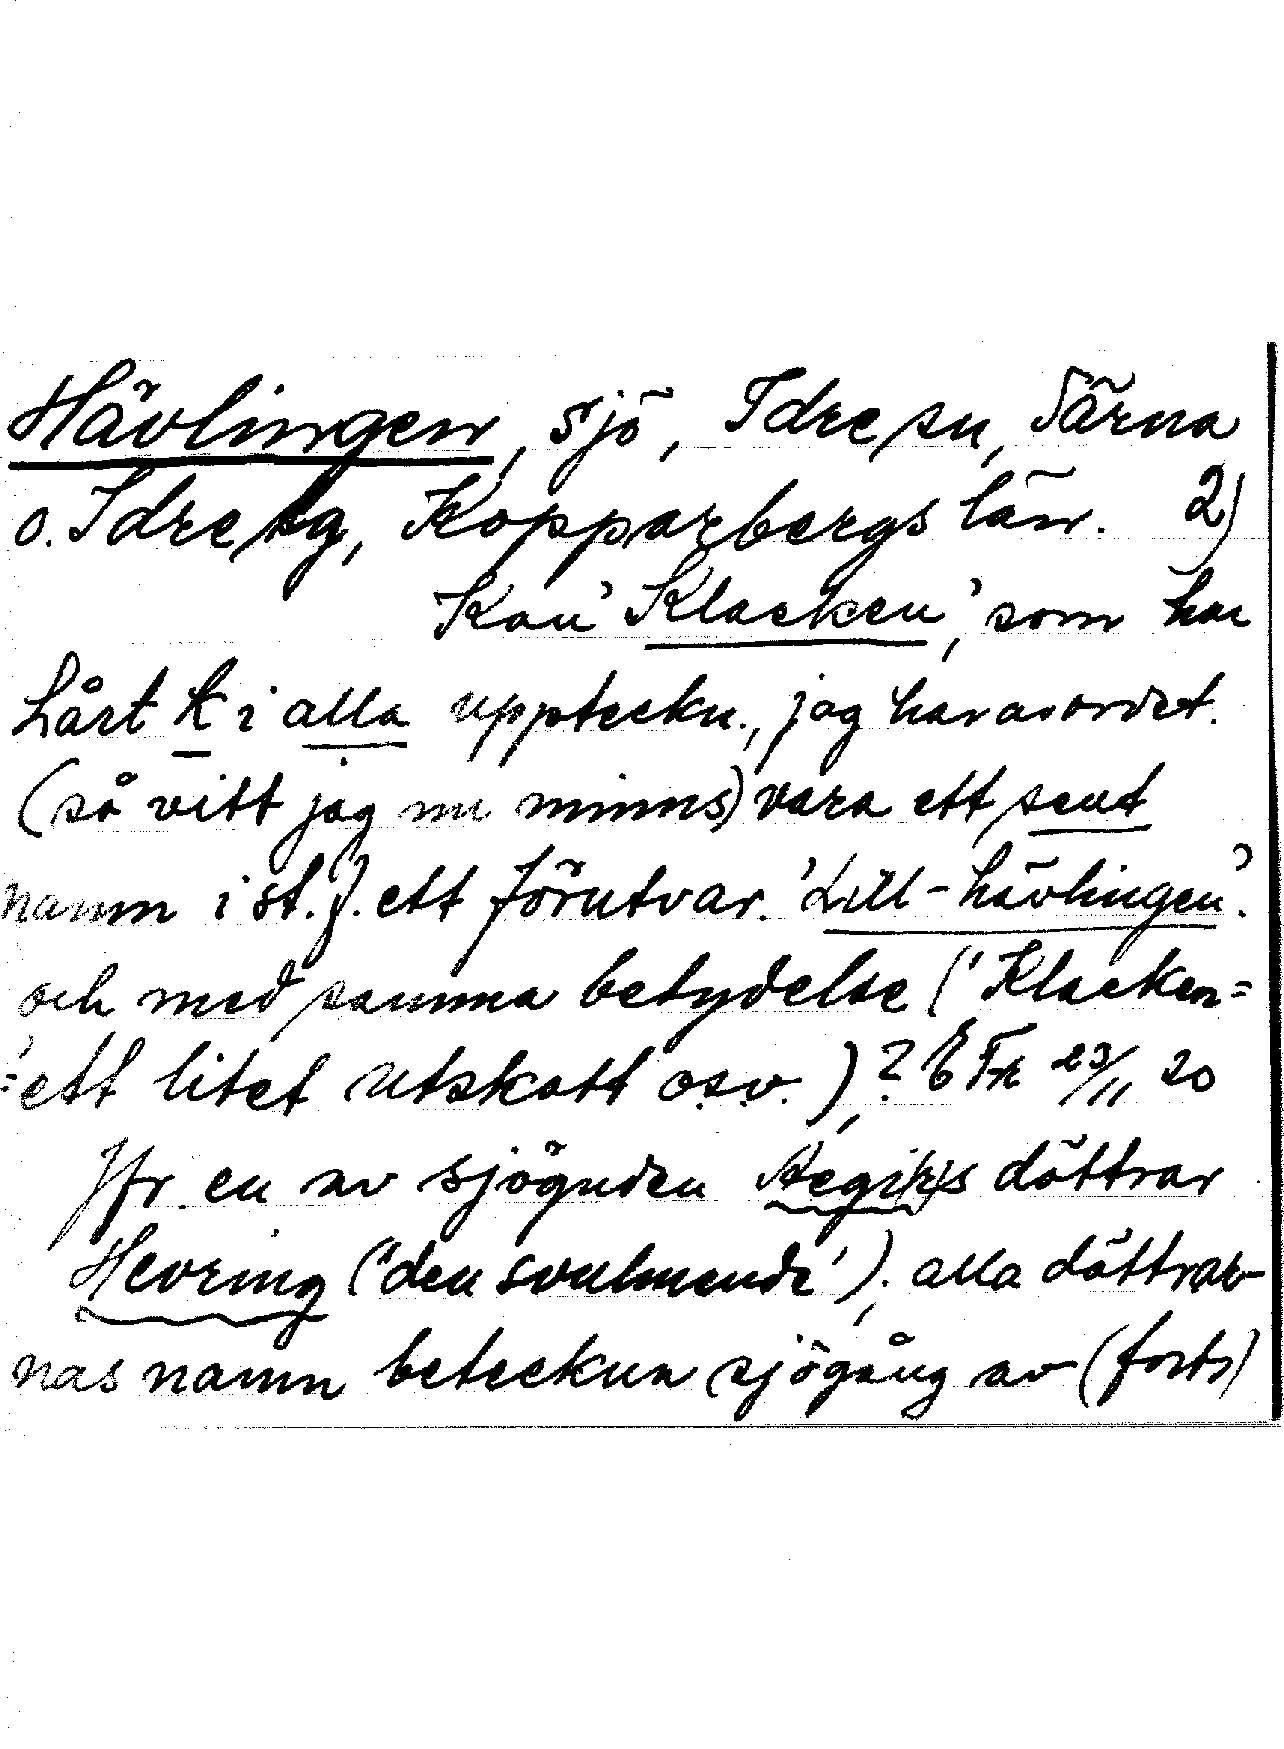 Hävlingen, sjö, Idre sn, Särna
o. Idre tg, Kopparbergs län. 2)
Kan 'Klacken', som har
hårt k i alla uppteckn., jag har avordet.
(så vitt jag nu minns) vara ett sent
namn i st. f. ett förutvar. 'Lill-hävlingen'.
och med samma betydelse ('Klacken=
='ett litet utskott osv.)? E Fr 23/11 20
Jfr en av sjöguden Aegi(r)s döttrar
Hevring ('den svulmande'); alla döttrar-
nas namn beteckna sjögång av (forts)